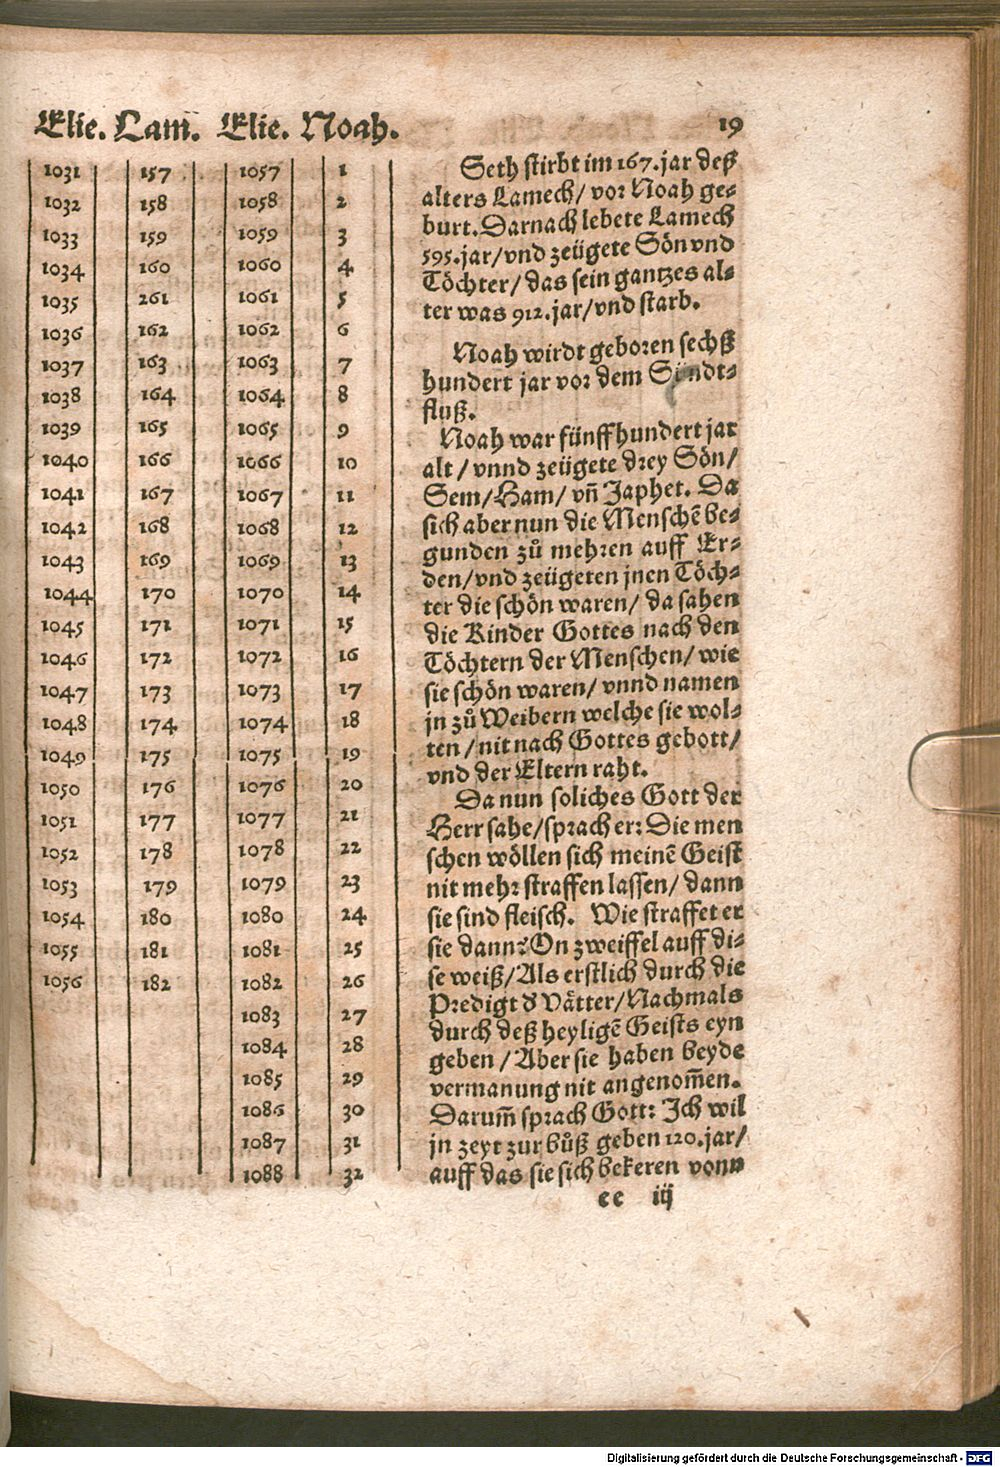 Elie. Lam̄. Elie. Noah. 19
1031 157 1057 1
1032 158 1058 2
1033 159 1059 3
1034 160 1060 4
1035 261 1061 5
1036 162 1062 6
1037 163 1063 7
1038 164 1064 8
1039 165 1065 9
1040 166 1066 10
1041 167 1067 11
1042 168 1068 12
1043 169 1069 13
1044 170 1070 14
1045 171 1071 15
1046 172 1072 16
1047 173 1073 17
1048 174 1074 18
1049 175 1075 19
1050 176 1076 20
1051 177 1077 21
1052 178 1078 22
1053 179 1079 23
1054 180 1080 24
1055 181 1081 25
1056 182 1082 26
1083 27
1084 28
1085 29
1086 30
1087 31
1088 32
Seth stirbt im 167. jar deß
alters Lamech/ vor Noah ge-
burt. Darnach lebete Lamech
595. jar/ vnd zeügete Sön vnd
Töchter/ das sein gantzes al-
ter was 912. jar/ vnd starb.
Noah wirdt geboren sechß
hundert jar vor dem Sündt-
fluß.
Noah war fünffhundert jar
alt/ vnnd zeügete drey Sön/
Sem/ Ham/ vn̄ Japhet. Da
sich aber nun die Menschē be-
gunden zů mehren auff Er-
den/ vnd zeügeten jnen Töch-
ter die schön waren/ da sahen
die Kinder Gottes nach den
Töchtern der Menschen/ wie
sie schön waren/ vnnd namen
jn zů Weibern welche sie wol-
ten/ nit nach Gottes gebott/
vnd der Eltern raht.
Da nun soliches Gott der
Herr sahe/ sprach er: Die men
schen wöllen sich meinē Geist
nit mehr straffen lassen/ dann
sie sind fleisch. Wie straffet er
sie dann? On zweiffel auff di-
se weiß/ Als erstlich durch die
Predigt d' Vätter/ Nachmals
durch deß heyligē Geists eyn
geben/ Aber sie haben beyde
vermanung nit angenom̄en.
Darum̄ sprach Gott: Ich wil
jn zeyt zur bůß geben 120. jar/
auff das sie sich bekeren vonn
cc iij
Digitalisierung gefördert durch die Deutsche Forschungsgemeinschaft - DFG